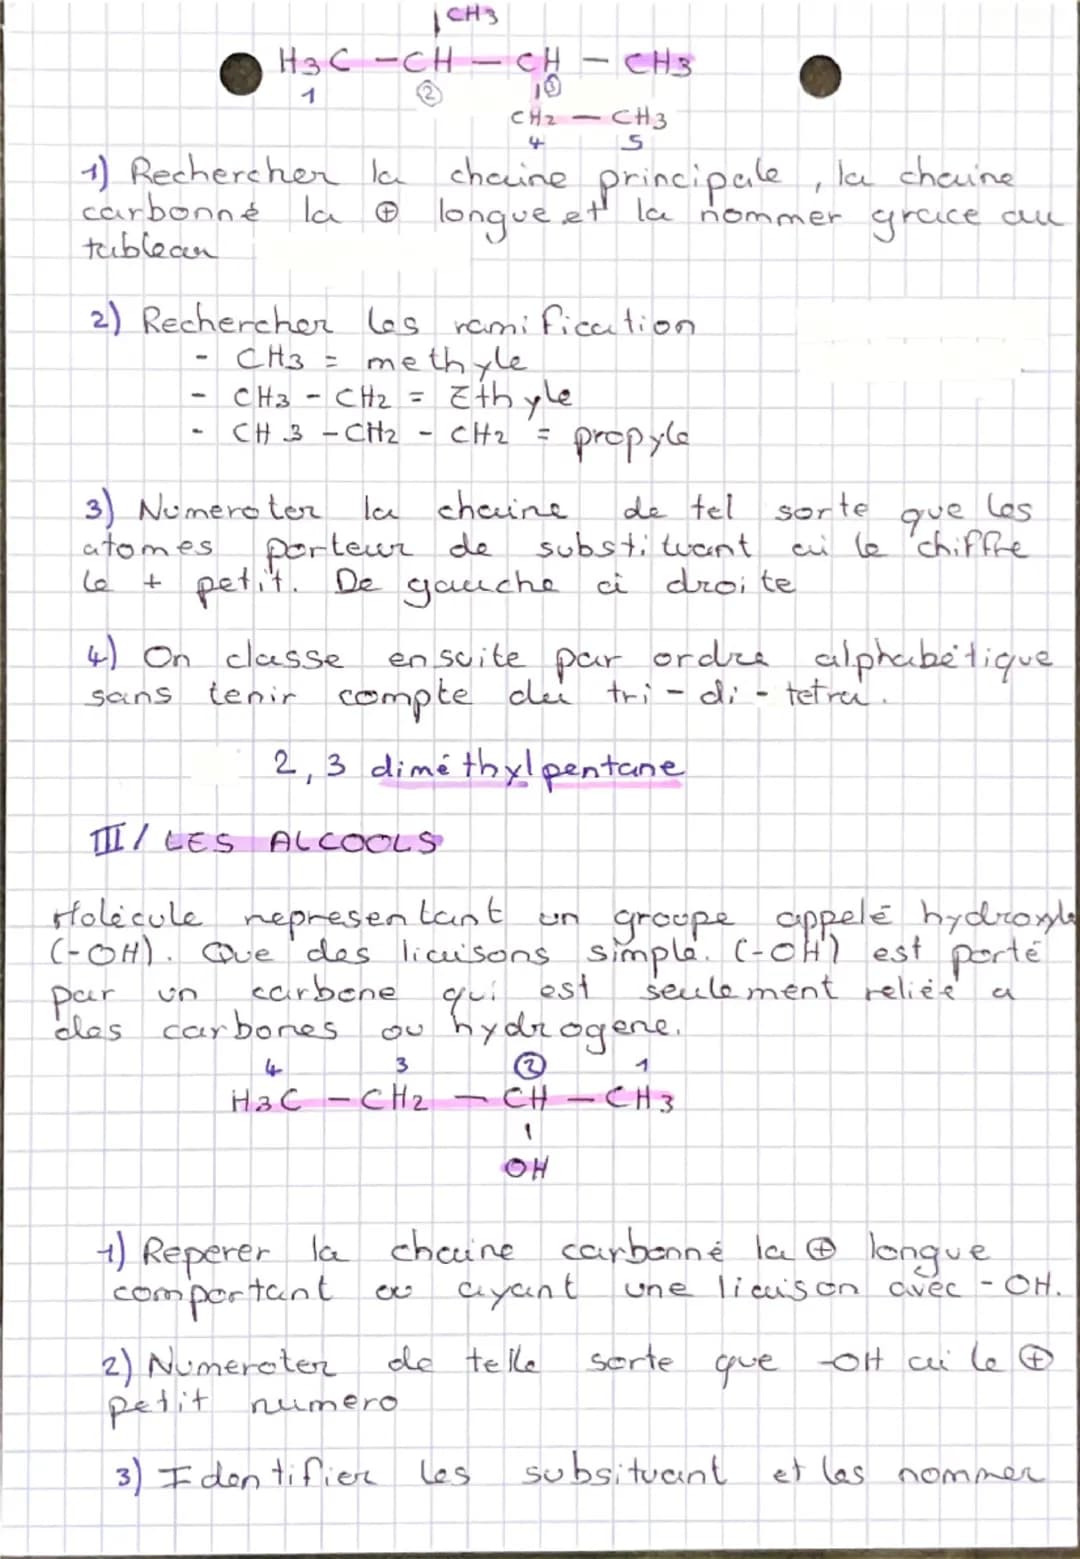 CH3
H3C - CH - CH - CH3
1 ② ③
CH2 - CH3
4 5
1) Rechercher la chaine principale, la chaine
carbonné la ⊕ longue et la nommer grace au
tableau
2) Rechercher les ramification
- CH3 = methyle
- CH3 - CH2 = Ethyle
- CH3 - CH2 - CH2 = propyle
3) Numeroter la chaine de tel sorte que les
atomes porteur de substituant ai le chiffre
le + petit. De gauche à droite
4) On classe ensuite par ordre alphabétique
sans tenir compte du tri - di - tetra.
2,3 diméthylpentane
III/ LES ALCOOLS
Molécule representant un groupe appelé hydroxyle
(-OH). Que des liaisons simple. (-OH) est porté
par un carbone qui est seulement reliée a
des carbones ou hydrogene.
4 3 ② 1
H3C - CH2 - CH - CH3
OH
1) Reperer la chaine carbonné la ⊕ longue
comportant ou ayant une liaison avec -OH.
2) Numeroter de telle sorte que -OH ai le ⊕
petit numero
3) Identifier les subsituant et les nommer